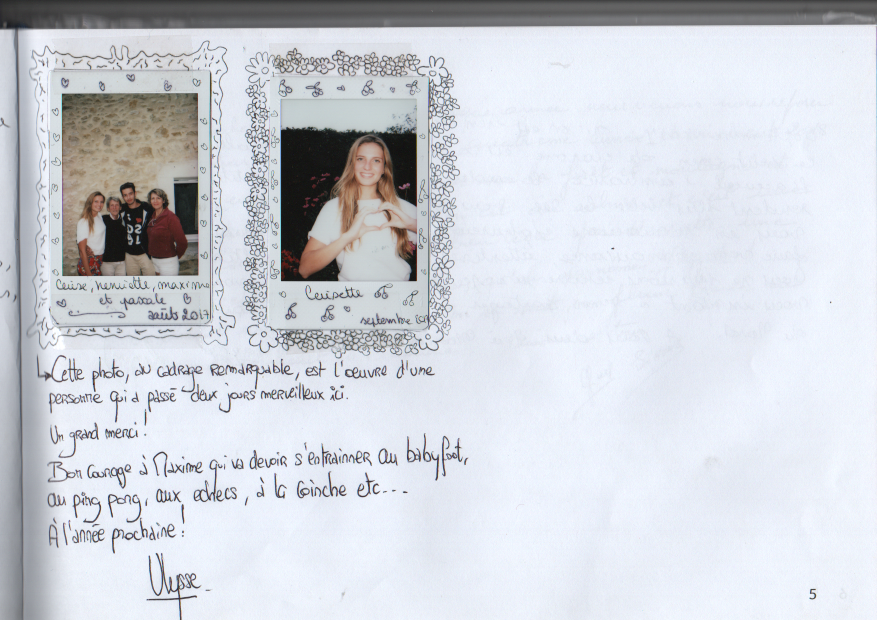 Cerise, henriette, maxime
et pascale
août 2017
Cerisette
septembre
↳ Cette photo, au cadrage remarquable, est l'œuvre d'une
personne qui a passé deux jours merveilleux ici.
Un grand merci !
Bon courage à Maxime qui va devoir s'entrainner au babyfoot,
au ping pong, aux echecs, à la coinche etc...
À l'année prochaine !
Ulysse.
5